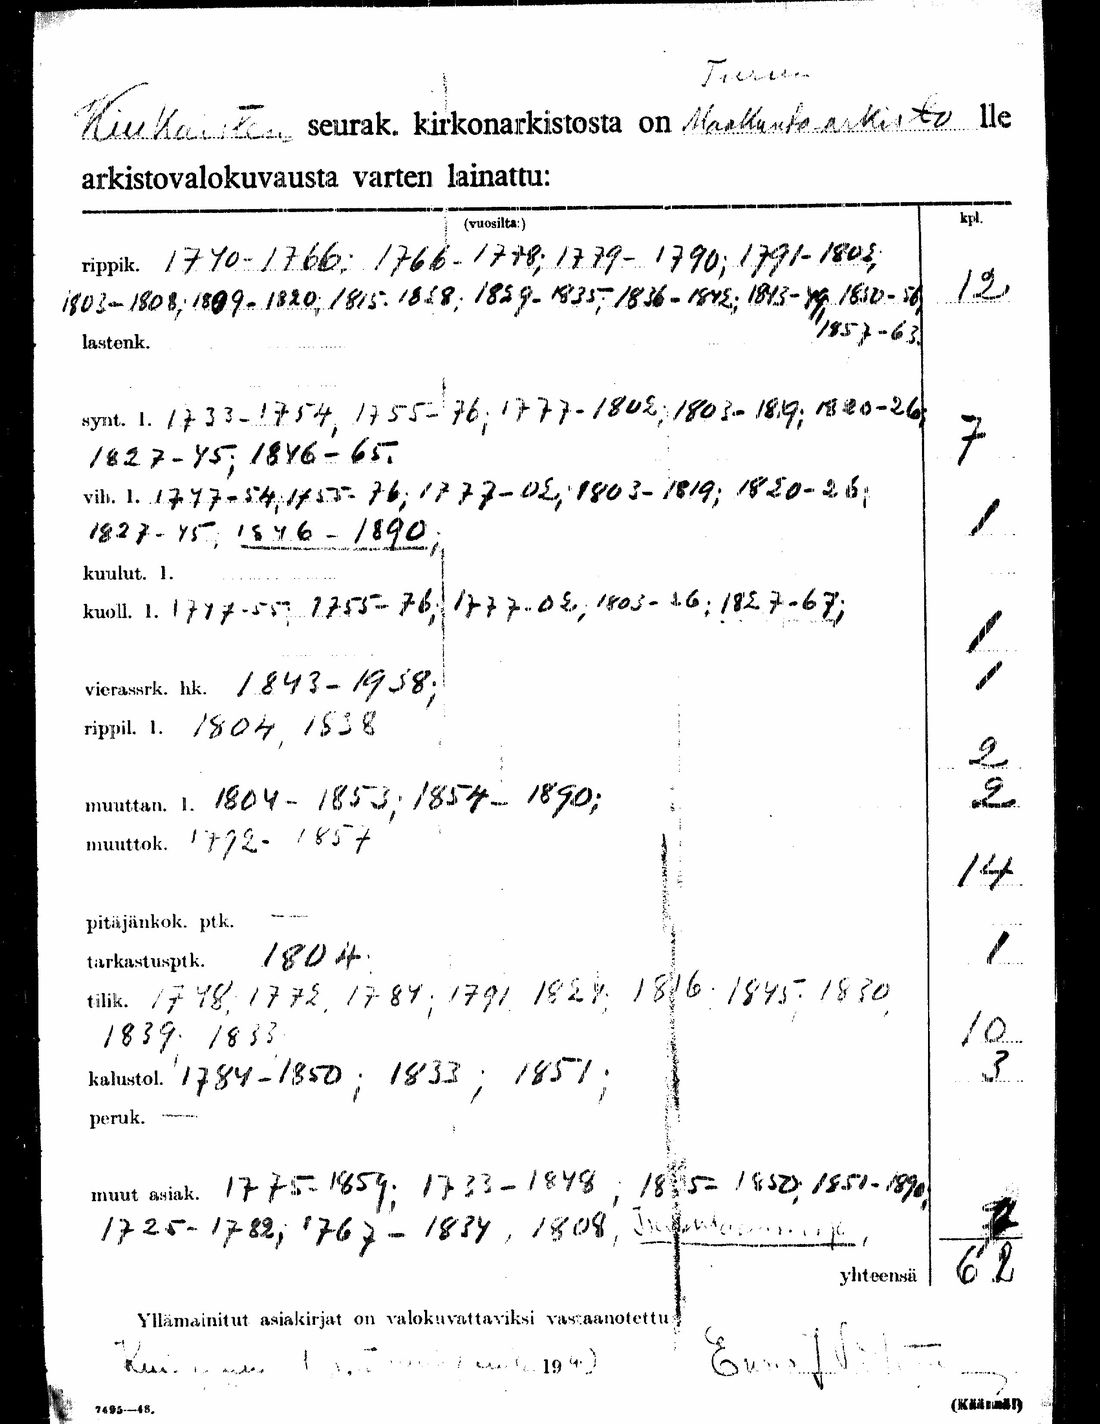 Turun
Kiukaisten seurak. kirkonarkistosta on Maakunta-arkisto lle
arkistovalokuvausta varten lainattu:
(vuosilta:) kpl.
rippik. 1740-1766; 1766-1778; 1779-1790; 1791-1802;
1803-1808; 1809-1820; 1815-1828; 1829-1835; 1836-1842; 1843-49, 1850-56, 12
1857-63.
lastenk.
synt. l. 1733-1754, 1755-76; 1777-1802; 1803-1819; 1820-26; 7
1827-45; 1846-65.
vih. l. 1747-54, 1755-76; 1777-02; 1803-1819; 1820-26;
1827-45; 1846-1890; 1
kuulut. l.
kuoll. l. 1747-55; 1755-76; 1777-02; 1803-26; 1827-67; 1
vierassrk. hk. 1843-1938; 1
rippil. l. 1804, 1838 2
muuttan. l. 1804-1853; 1854-1890; 2
muuttok. 1792-1857 14
pitäjänkok. ptk. —
tarkastusptk. 1804. 1
tilik. 1748, 1772, 1784; 1791, 1824; 1816; 1845; 1830,
1839; 1833 10
kalustol. 1784-1850; 1833; 1851; 3
peruk. —
muut asiak. 1775-1859; 1733-1848; 1850; 1851-1890;
1725-1782; 1767-1834, 1808,
yhteensä 62
Yllämainitut asiakirjat on valokuvattaviksi vastaanotettu
19
7495—48. (Käännä!)